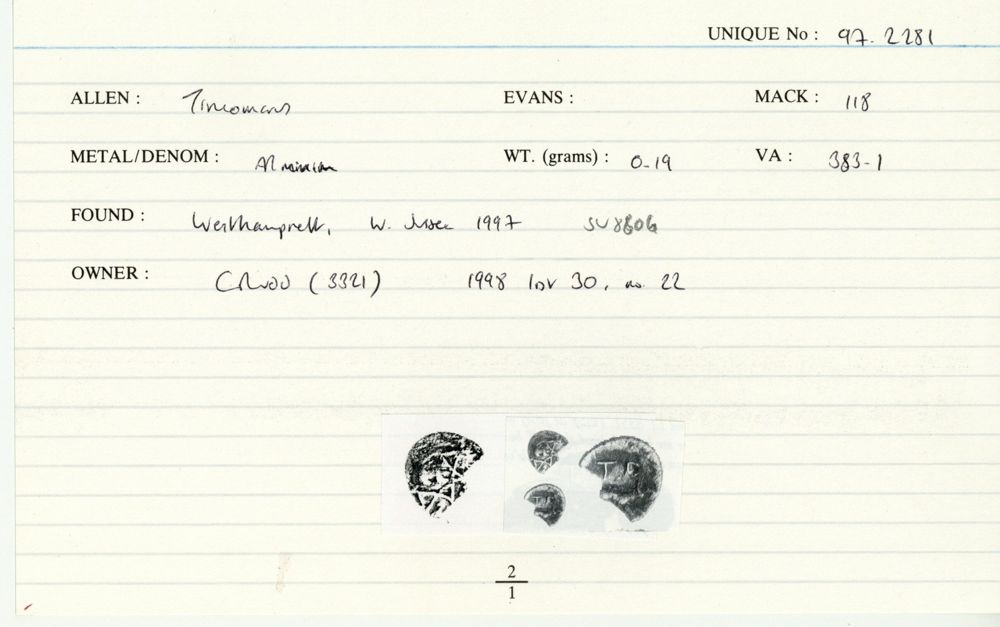 UNIQUE No : 97.2281
ALLEN : Tincomarus EVANS : MACK : 118
METAL/DENOM : AR minim WT. (grams) : 0.19 VA : 383-1
FOUND : Westhampnett, W. Sussex 1997 SU8806
OWNER : CR (3321) 1998 30, no. 22
T C
2
1